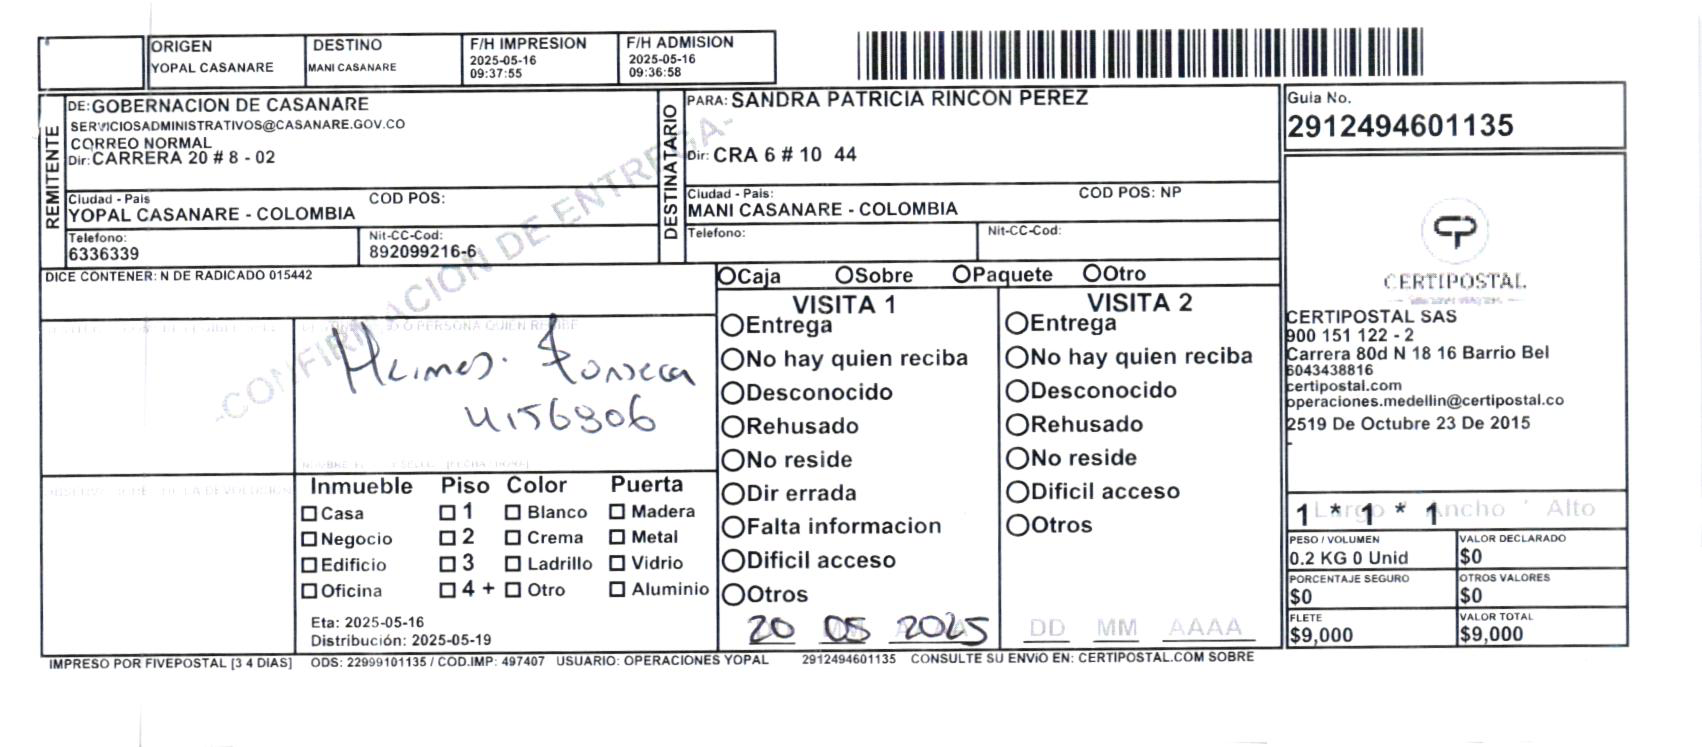 ORIGEN
YOPAL CASANARE
DESTINO
MANI CASANARE
F/H IMPRESION
2025-05-16
09:37:55
F/H ADMISION
2025-05-16
09:36:58
REMITENTE
DE: GOBERNACION DE CASANARE
SERVICIOSADMINISTRATIVOS@CASANARE.GOV.CO
CORREO NORMAL
Dir: CARRERA 20 # 8 - 02
Ciudad - Pais
COD POS:
YOPAL CASANARE - COLOMBIA
Telefono:
6336339
Nit-CC-Cod:
892099216-6
DESTINATARIO
PARA: SANDRA PATRICIA RINCON PEREZ
Dir: CRA 6 # 10 44
Ciudad - Pais:
COD POS: NP
MANI CASANARE - COLOMBIA
Telefono:
Nit-CC-Cod:
Guia No.
2912494601135
-CONFIRMACION DE ENTREGA-
DICE CONTENER: N DE RADICADO 015442
Caja Sobre Paquete Otro
O PERSONA QUIEN RECIBE
Fonseca
4156806
Inmueble Piso Color Puerta
Casa 1 Blanco Madera
Negocio 2 Crema Metal
Edificio 3 Ladrillo Vidrio
Oficina 4 + Otro Aluminio
Eta: 2025-05-16
Distribución: 2025-05-19
VISITA 1
Entrega
No hay quien reciba
Desconocido
Rehusado
No reside
Dir errada
Falta informacion
Dificil acceso
Otros
20 05 2025
VISITA 2
Entrega
No hay quien reciba
Desconocido
Rehusado
No reside
Dificil acceso
Otros
DD MM AAAA
CERTIPOSTAL
CERTIPOSTAL SAS
900 151 122 - 2
Carrera 80d N 18 16 Barrio Bel
6043438816
certipostal.com
operaciones.medellin@certipostal.co
2519 De Octubre 23 De 2015
-
1 * 1 * 1
Largo Ancho Alto
PESO / VOLUMEN
0.2 KG 0 Unid
VALOR DECLARADO
$0
PORCENTAJE SEGURO
$0
OTROS VALORES
$0
FLETE
$9,000
VALOR TOTAL
$9,000
IMPRESO POR FIVEPOSTAL [3 4 DIAS] ODS: 22999101135 / COD.IMP: 497407 USUARIO: OPERACIONES YOPAL 2912494601135 CONSULTE SU ENVíO EN: CERTIPOSTAL.COM SOBRE